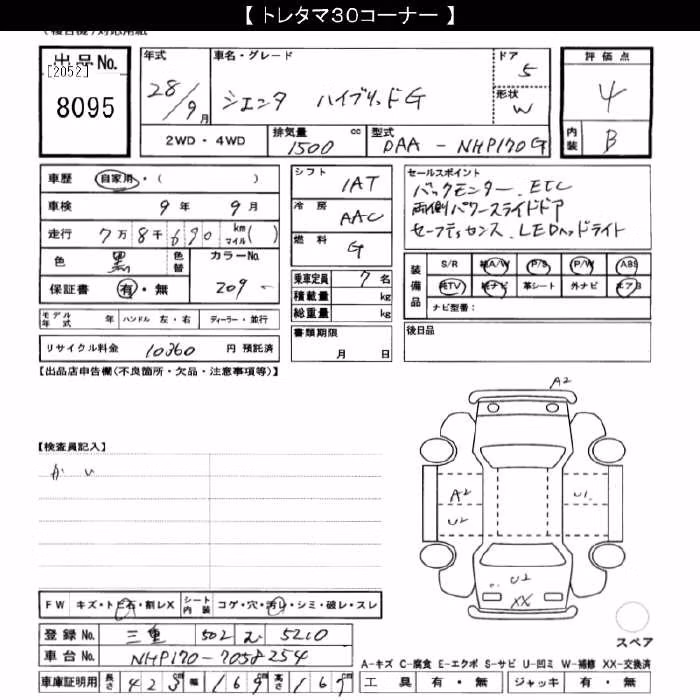 【 トレタマ30コーナー 】
出品No.
[2052]
8095
年式
28/9月
車名・グレード
シエンタ ハイブリッドG
ドア
5
形状
W
評価点
4
内装
B
2WD・4WD
排気量
1500
cc
型式
DAA - NHP170G
車歴 自家用・( )
車検 9年 9月
走行 7万8千690 km マイル( )
色 黒 色替
カラーNo. 209
保証書 有・無
モデル年式 年 ハンドル 左・右 ディーラー・並行
リサイクル料金 10360 円 預託済
シフト
IAT
冷房
AAC
燃料
G
乗車定員 7名
積載量 kg
総重量 kg
書類期限
月 日
セールスポイント
バックモニター、ETC
両側パワースライドドア
セーフティセンス、LEDヘッドライト
装備品
S/R 純A/W P/S P/W ABS
純TV 純ナビ 革シート 外ナビ エアB
ナビ型番：
後日品
【出品店申告欄(不良箇所・欠品・注意事項等)】
【検査員記入】
A2
A2
U2
U1
U2
XX
スペア
FW キズ・トビ石・割レX シート内装 コゲ・穴・汚レ・シミ・破レ・スレ
登録No. 三重 502 む 5210
車台No. NHP170-7058254
車庫証明用 長さ 423 幅 169 高さ 167
A-キズ C-腐食 E-エクボ S-サビ U-凹ミ W-補修 XX-交換済
工具 有・無 ジャッキ 有・無